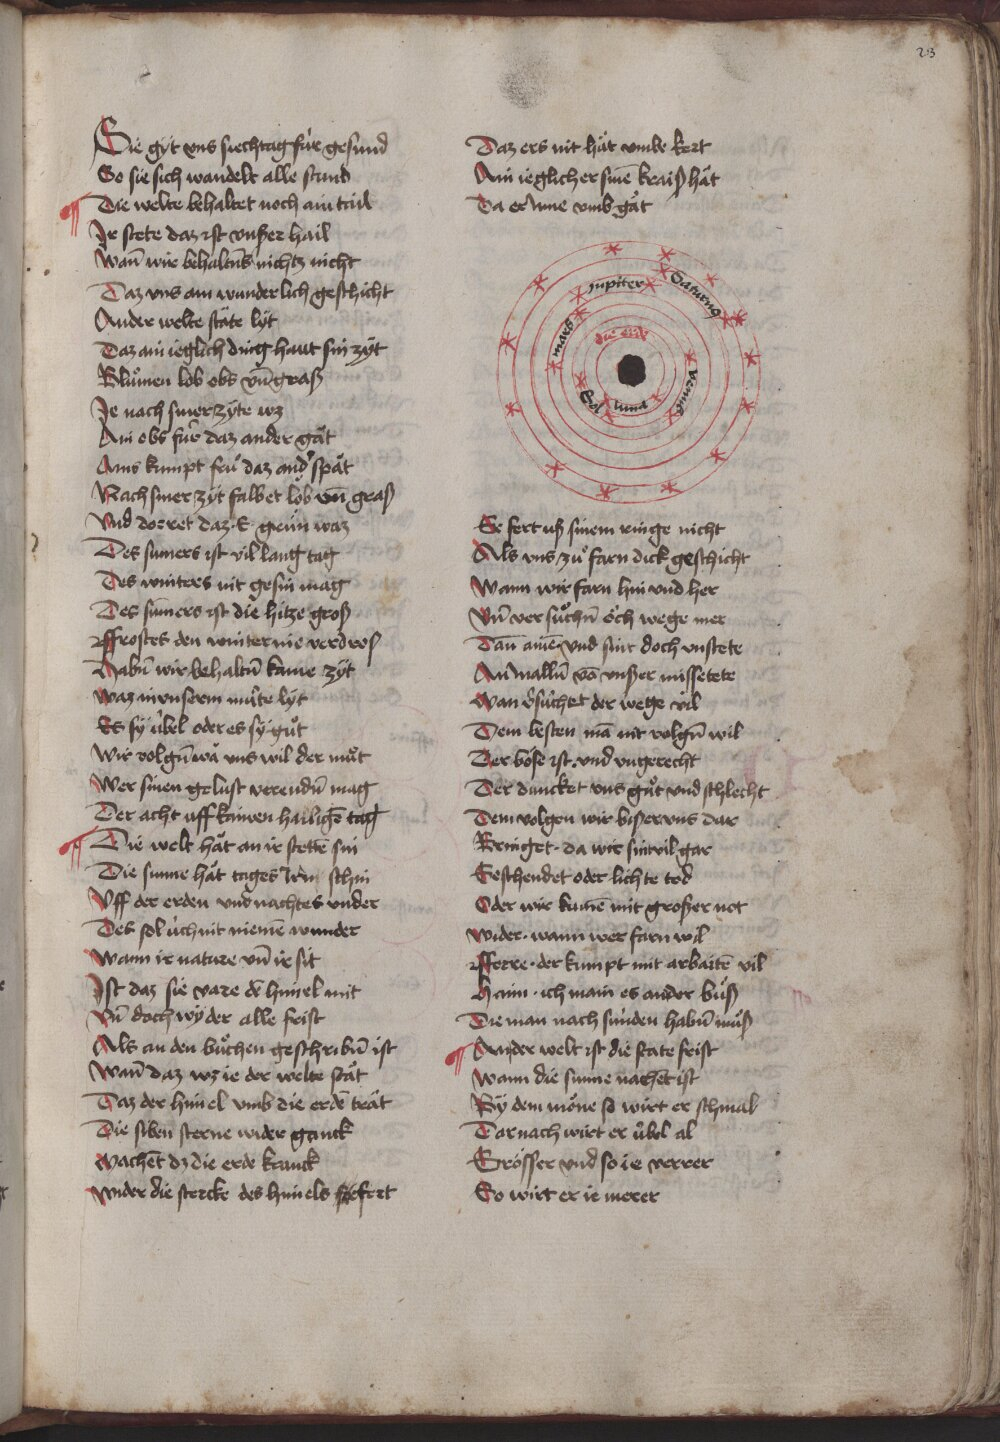 23
Sie gyt vns siechtag für gesund
So sie sich wandelt alle stund
Die welte behaltet noch ain tail
Ir stete daz ist vnßer hail
Wan̄ wir behaltn̄s nichtz nicht
Daz vns ain wunderlich geschicht
Ander welte stäte lyt
Daz ain ieglich ding haut sin zyt
Blůmen lob obs vn̄ graß
Je nach siner zyte wz
Ain obs für daz ander gät
Ains kumpt frů daz and' spät
Nach siner zyt falbet lob vn̄ graß
Vnd dorret daz · E · grůn waz
Des sumers ist vil lang tag
Des winters nit gesin mag
Des sumers ist die hitze groß
ffrostes den winter nie verdroß
Habn̄ wir behaltn̄ kaine zyt
Waz in vnserm můte lyt
Es sy übel oder es sy gůt
Wir volgn̄ wä vns wil der můt
Wer sinen gelust verendn̄ mag
Der acht uff kainen hailigē tag
Die welt hät an ir stettē sin
Die sunne hät tages irn schin
Vff der erden vnd nachtes vnder
Des sol üch nit niemē wunder
Wann ir nature vn̄ ir sit
Ist daz sie vare dē himel mit
Vn̄ doch wyder alle frist
Als an den bůchen geschribn̄ ist
Wan̄ daz wz ie der welte stät
Daz der himel vmb die erdē trät
Die siben sterne wider ganck
Machēt dz die erde kranck
Wider die stercke des himels fert
Daz ers nit hät vmbe kert
Ain ieglicher sinē kraiß hät
Da er inne vmb gät
Saturnq
jupiter
mars
die erde
Sol
luna
venus
Er fert uß sinem ringe nicht
Als vns zů farn dick geschicht
Wann wir farn hin vnd her
Vn̄ versůchn̄ öch wege mer
Dan̄ ainē vnd sint doch vnstete
An walln̄ vō vnßer missetete
Wan v'sůchet der wege vil
Dem besten mā nit volgn̄ wil
Der böse ist vnd vngerecht
Der duncket vns gůt vnd schlecht
Dem volgen wir biß er vns dar
Bringet · da wir sint vil gar
Geschendet oder lichte tod
Oder wir kumē mit großer not
Wider · wann wer farn wil
fferre · der kumpt mit arbaitē vil
Haim · ich main es ander bůß
Die man nach sünden habn̄ můß
Ander welt ist die state frist
Wann die sunne nachēt ist
By dem mone so wirt er schmal
Darnach wirt er übel al
Grösser vnd so ie verrer
So wirt er ie merer